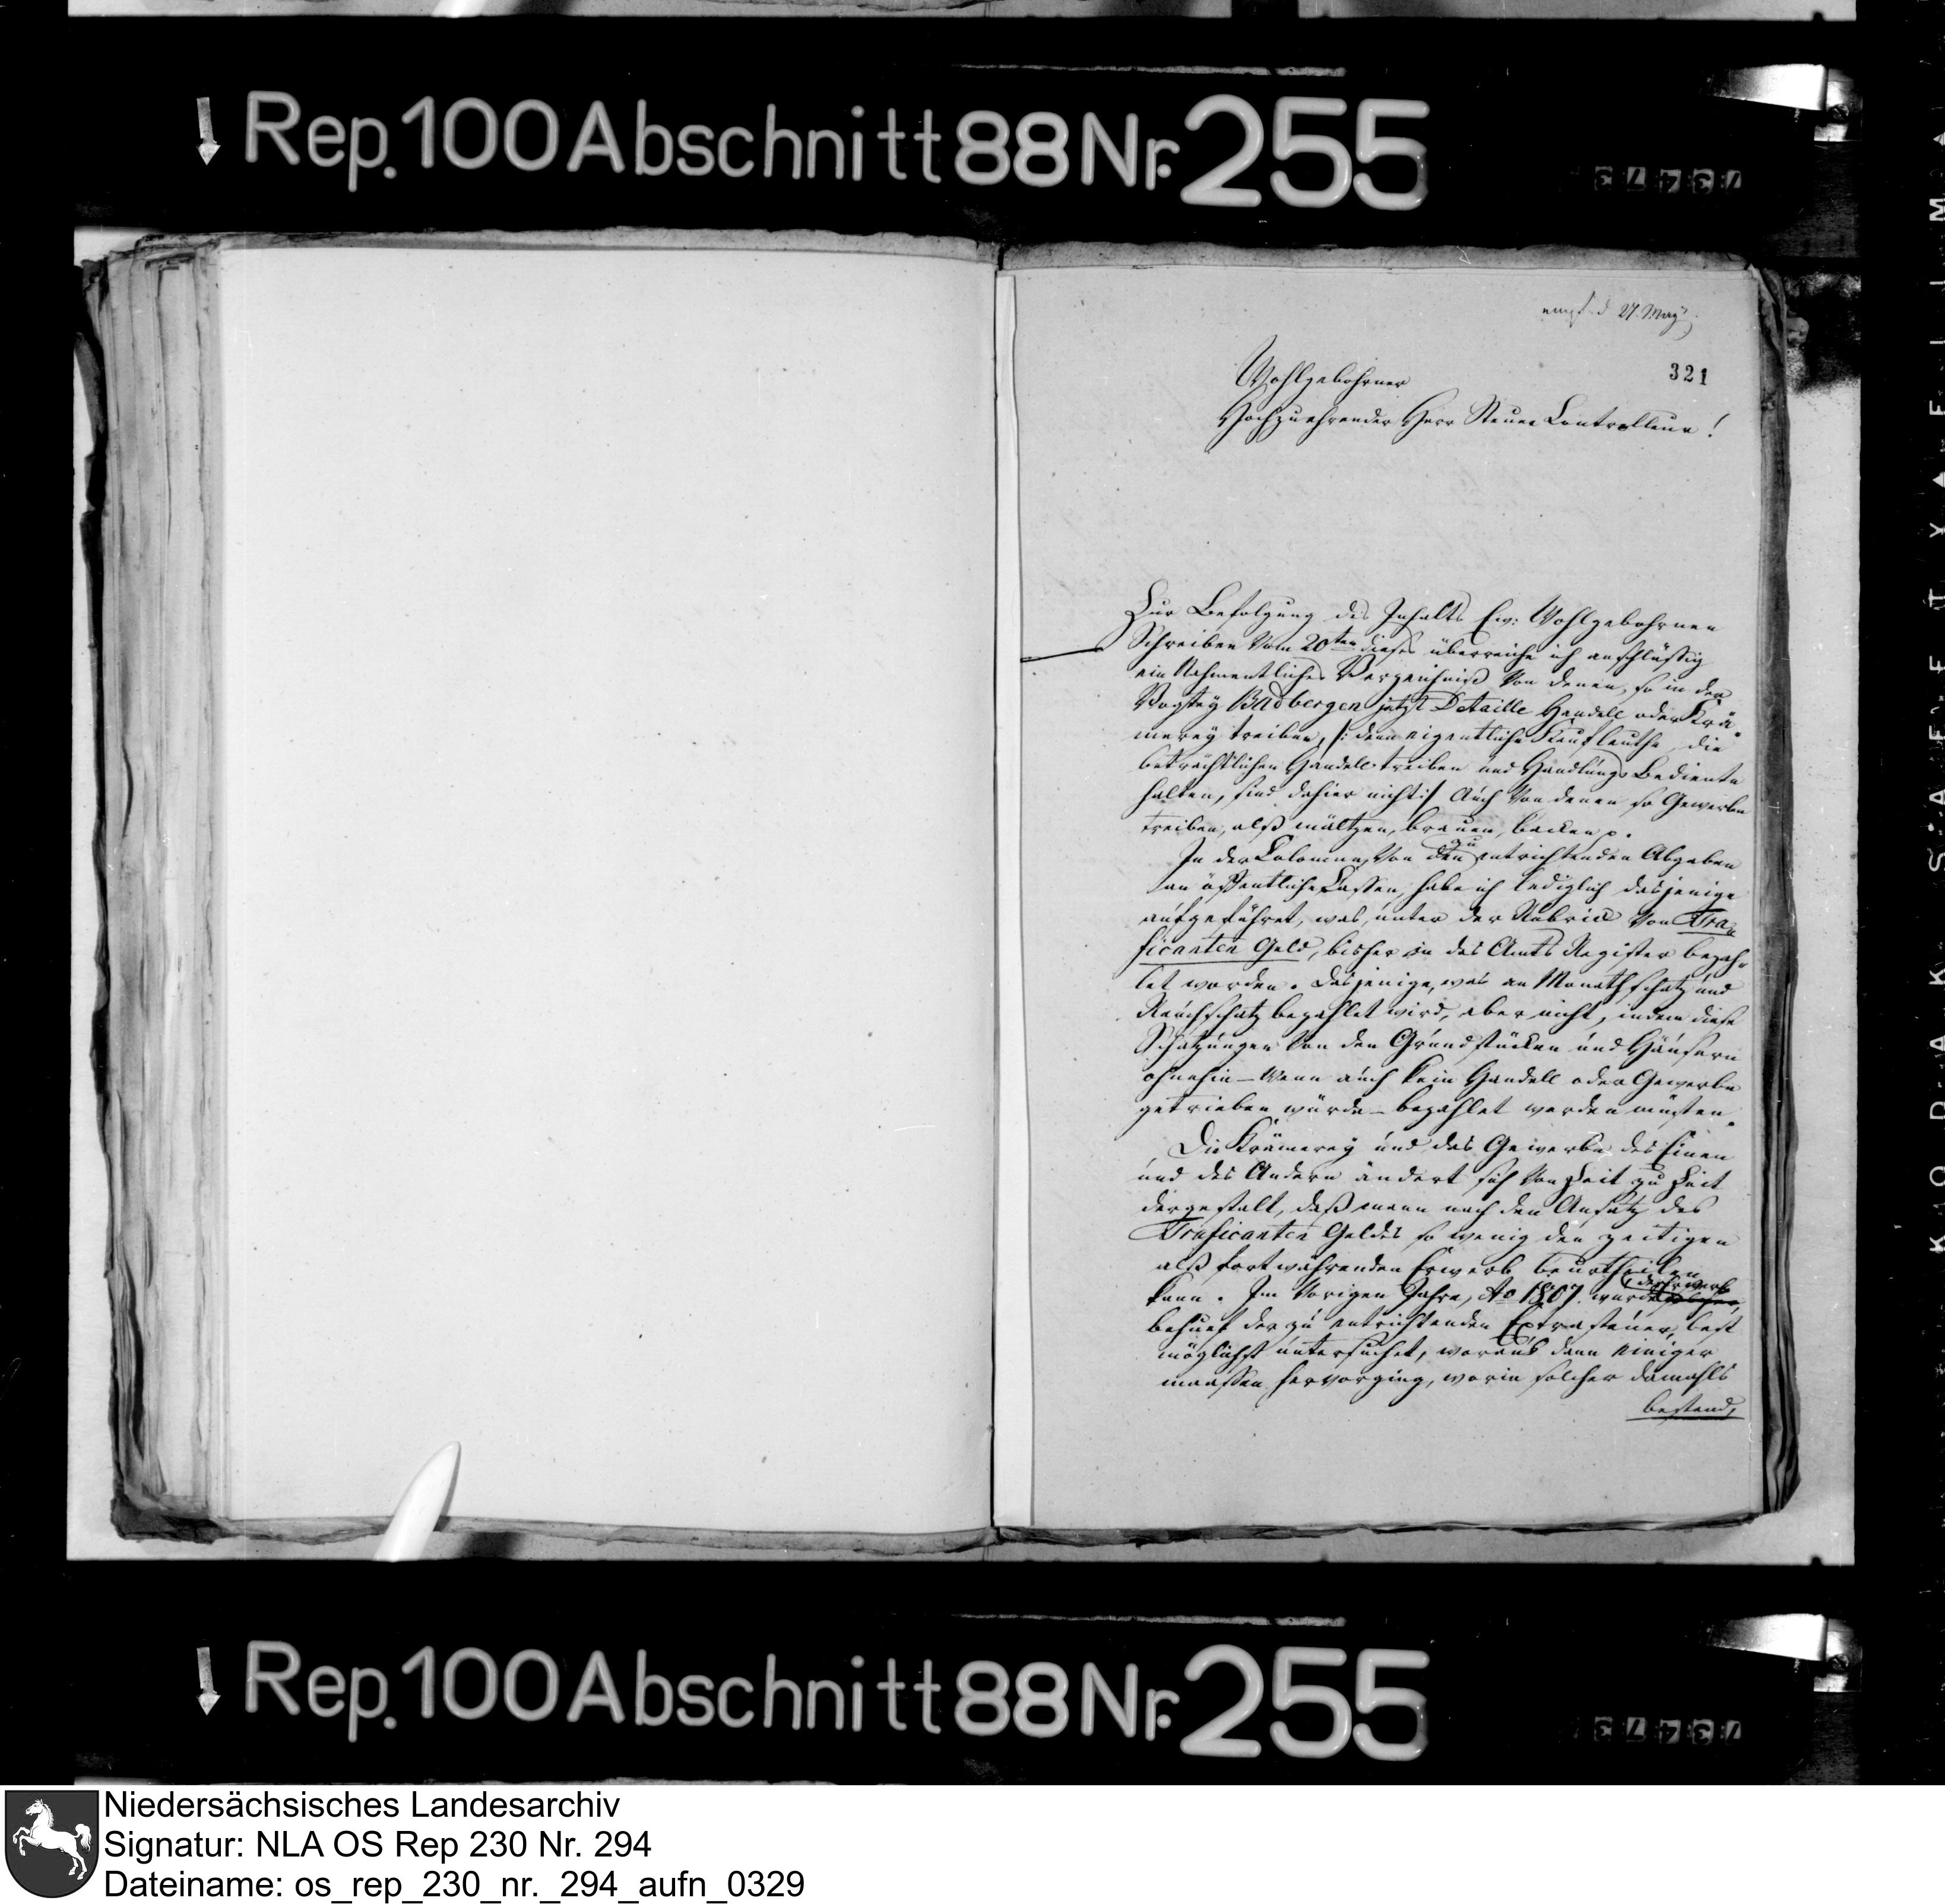 Rep. 100 Abschnitt 88 Nr. 255
empf. d 27. May
321
Wohlgebohrner
Hochzuehrender Herr Steuer Controlleur!
Zur Befolgung des Inhalts Ew: Wohlgebohrnen
Schreiben vom 20ten dieses überreiche ich anschlüssig
ein Nahmentliches Verzeichniß von denen, so in der
Vogtey Badbergen jetzt Detaille Handell oder Krä-
merey treiben, /: denn eigentliche Kaufleuthe, die
beträchtlichen Handell treiben und Handlungs Bediente
halten, sind dahier nicht :/ Auch von denen so Gewerbe
treiben, alß mältzen, brauen, backen p.
In der Colomne, von den zu entrichtenden Abgaben
an öffentliche Cassen, habe ich lediglich dasjenige
aufgeführet, was, unter der Rubric von Tra-
ficanten Geld, bisher in das Amts Register bezah-
let worden. Dasjenige, was an Monathschatz und
Rauchschatz bezahlet wird, aber nicht, indem diese
Schatzungen von den Grundstücken und Häusern
ohnehin – wenn auch kein Handell oder Gewerbe
getrieben würde – bezahlet werden müßten.
Die Krämerey und das Gewerbe des Einen
und des Andern ändert sich von Zeit zu Zeit
dergestalt, daß mann nach den Ansatz des
Traficanten Geldes so wenig den zeitigen
alß fortwährenden Erwerb beurtheilen
kann. Im vorigen Jahre, Ao 1807. wurde der Erwerb
behuef der zu entrichtenden Extrasteuer, best
möglichst untersuchet, woraus dann einiger
maassen hervorging, worin solcher damahls
bestand,
Rep. 100 Abschnitt 88 Nr. 255
Niedersächsisches Landesarchiv
Signatur: NLA OS Rep 230 Nr. 294
Dateiname: os_rep_230_nr._294_aufn_0329